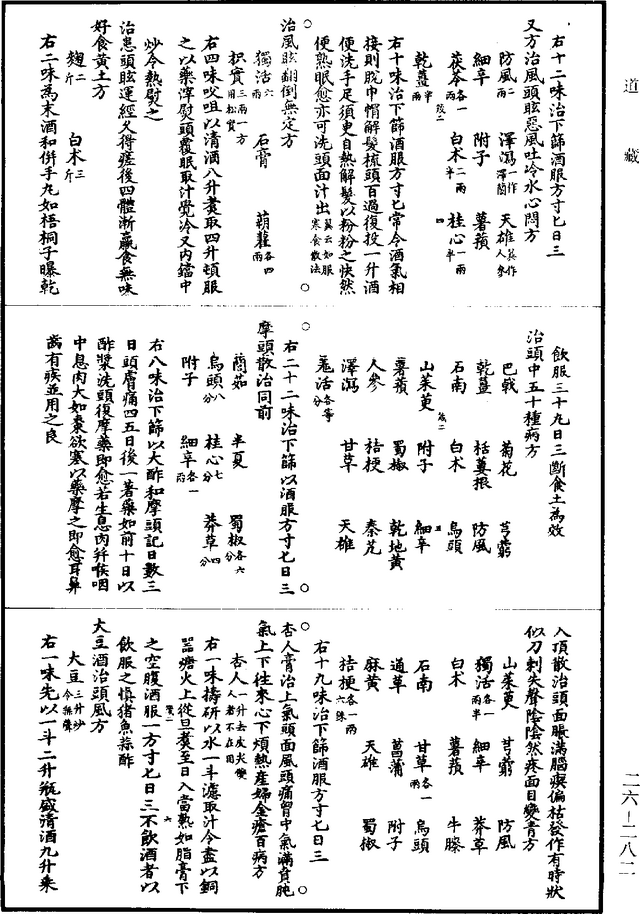 道藏
右十二味治下篩酒服方寸匕日三
又方治風頭眩惡風吐冷水心悶方
防風二兩 澤瀉一作澤蘭 天雄蓖作人參
細辛 附子 薯蕷
茯苓各一兩 白朮二兩半 桂心一兩半
乾薑半兩
右十味治下篩酒服方寸匕常令酒氣相
接則脫巾帽解髮梳頭百過復投一升酒
便洗手足須臾自熱解髮以粉粉之快然
便熟眠愈亦可洗頭面汁出冀云如服寒食散法
治風眩翻倒無定方
獨活六兩 石膏 蒴藋各四兩
枳實三兩一方用松實
右四味㕮咀以清酒八升煑取四升頓服
之以藥滓熨頭覆眠取汁覺冷又內鐺中
炒令熱熨之
治患頭眩運經久得瘥後四體漸羸食無味
好食黃土方
麴二斤 白朮三斤
右二味為末酒和併手丸如梧桐子曝乾
飲服三十九日三斷食土為效
治頭中五十種病方
巴戟 菊花 芎藭
乾薑 栝蔞根 防風
石南 白朮 烏頭
山茱萸 附子 細辛
薯蕷 蜀椒 乾地黃
人參 桔梗 秦艽
澤瀉 甘草 天雄
羗活各等分
右二十二味治下篩以酒服方寸七日三
摩頭散治同前
䕡茹 半夏 蜀椒各六分
烏頭八分 桂心七分 莽草四分
附子 細辛各一
右八味治下篩以大酢和摩頭記日數三
日頭膚痛四五日後一著藥如前十日以
酢漿洗頭復摩藥即愈若生息肉并喉咽
中息肉大如棗欲塞以藥摩之即愈耳鼻
齒有疾並用之良
入頂散治頭面脹滿腦瘈偏枯發作有時狀
似刀刺失聲陰陰然疼面目變青方
山茱萸 芎藭 防風
獨活各一兩半 細辛 莽草
白朮 薯蕷 牛膝
石南 甘草各一兩 烏頭
通草 菖蒲 附子
麻黃 天雄 蜀椒
桔梗各一兩六銖
右十九味治下篩酒服方寸匕日三
杏人膏治上氣頭面風頭痛胷中氣滿賁豘
氣上下徃來心下煩熱產婦金瘡百病方
杏人一升去皮尖雙人者不在用
右一味擣研以水一斗濾取汁令盡以銅
噐塘火上從旦煑至日入當熟如脂膏下
之空腹酒服一方寸匕日三不飲酒者以
飲服之慎猪魚蒜酢
大豆酒治頭風方
大豆三升炒令無聲
右一味先以一斗二升瓶盛清酒九升乘
二六—二八二